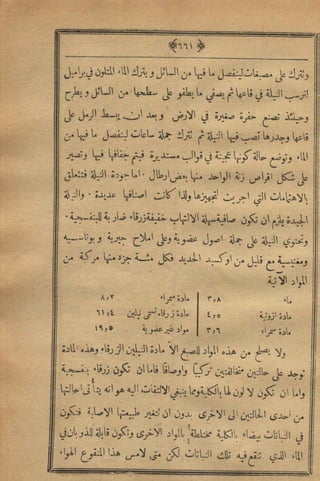 ﴿٦٦١﴾
وتترك على مصبغات لينفصل ما فيها من السائل ويترك الماء المتلون فى براميل
لترسب النيلة فى قاعها ثم يصفى ما يطفو على سطحها من السائل ويطرح
وحينئذ تصنع حفرة صغيرة فى الارض وبعد ان يبسط الرمل على
قاعها وجدرها تصب فيها النيلة ثم تترك جملة ساعات لينفصل ما فيها من
الماء وتوضع حالة كونها عجينة فى قوالب مستديرة فيتم جفافها فيها وتصير
على شكل اقراص زنة الواحد منها بعض ارطال اما جودة النيلة فتتعلق
بالاهتمامات التى اجريت لتجهيزها ولذا كانت اصنافها عديدة والنيلة
الجيدة يلزم ان تكون صافية سهلة الالتهاب خفيفة زرقاء ضاربة للبنفسجية
وتحتوى النيلة على جملة اصول عضوية وعلى املاح جيرية وبوتاسية
ومغنيسية مع قليل من اوكسيد الحديد فكل مئة جزء منها مركبة من
المواد الآتية
ماء ٣٫٨ مادة صمراء ٢٫٨
مادة ازوتية ٥٫٤ مادة زرقاء تسمى نيلين ٦١٫٤
مادة سمراء ٦٫٣ مواد غير عضوية ١٩٫٥
ولا يصلح من هذه المواد للصبغ الا مادة النيلين الزرقاء وهذه المادة
توجد على حالتين متخالفتين تركيبا واوصافا فاما ان تكون زرقاء بنفسجية
واما ان تكون لا لون لها بالكلية ومما ينبغى الالتفات اليه هو انه يتأتى احالتها
من احدى الحالتين الى الاخرى بدون ان تتغير طبيعتها الاصلية فتكون
فى النباتات بيضاء بالكلية مختلطة بالمواد الاخرى وتكون قابلة للذوبان فى
الماء الذى تنقع فيه تلك النباتات لكن متى لامس هذا المنقوع الهواء